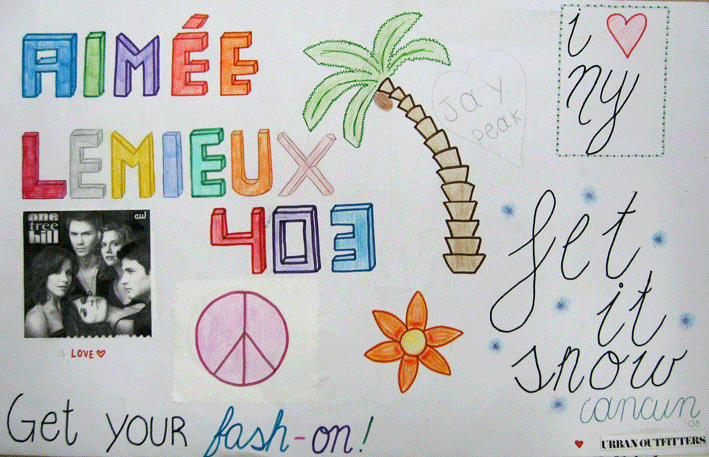 AIMÉE
LEMIEUX
403
Jay
peak
i ♥
ny
one
tree
hill
CW
LOVE ♥
let
it
snow
cancun
'08
Get YOUR fash-on!
♥ URBAN OUTFITTERS